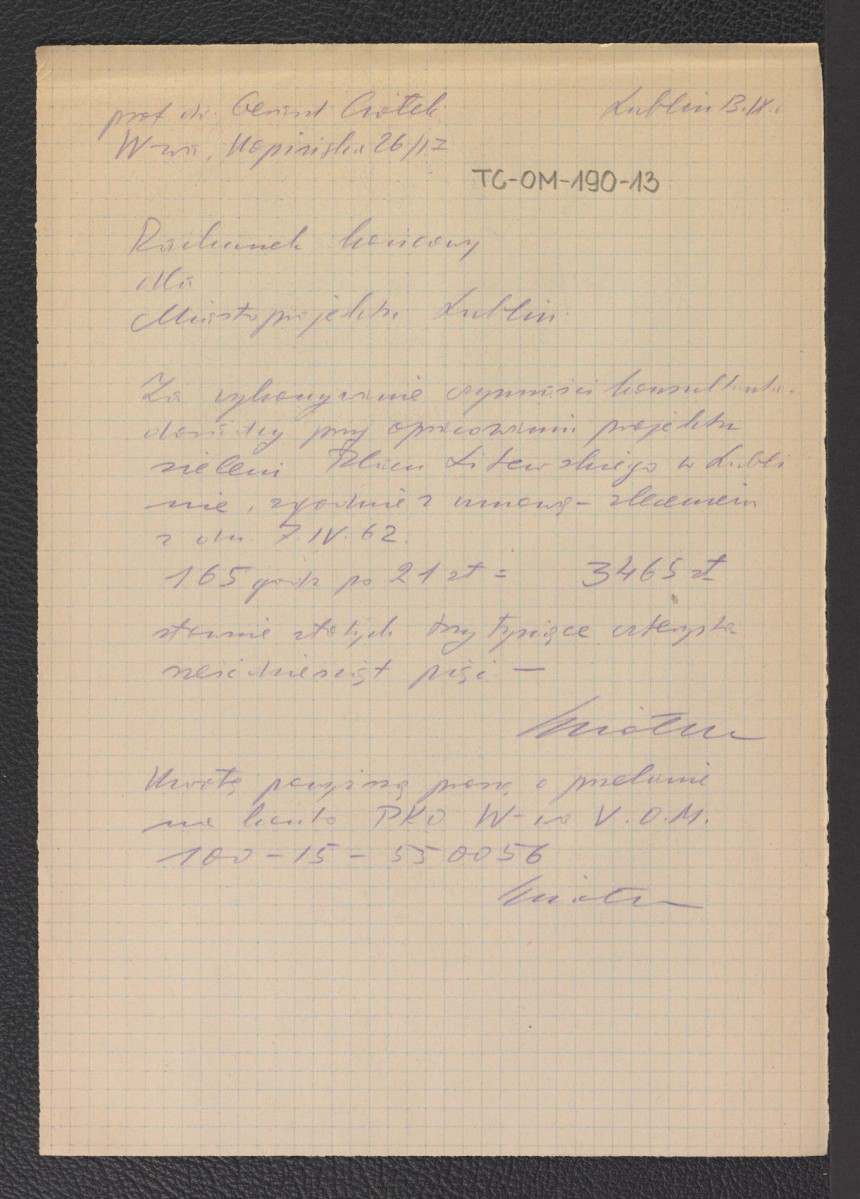 prof dr. Gerard Ciołek Lublin 13.IX.
W-wa, Kopińska 26/17
TC-OM-190-13
Rachunek końcowy
dla
Miastoprojektu Lublin
Za wykonywanie czynności konsultanta-
doradcy przy opracowaniu projektu
zieleni Placu Litewskiego w Lubli
nie, zgodnie z umową-zleceniem
z dn. 7.IV.62.
165 godz po 21 zł = 3465 zł
słownie złotych trzy tysiące czterysta
sześćdziesiąt pięć —
Kwotę powyższą proszę o przelanie
na konto PKO W-wa V.O.M.
100-15-550056